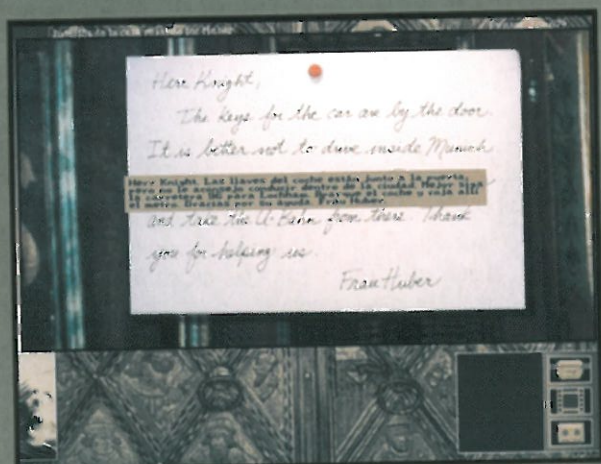 Herr Knight,
The keys for the car are by the door.
It is better not to drive inside Munich.
Herr Knight. Las llaves del coche están junto a la puerta,
pero no le aconsejo conducir dentro de la ciudad. Mejor siga
la carretera 96 para Lochham. Aparque el coche y coja allí
el metro. Gracias por su ayuda. Frau Huber.
and take the U-Bahn from there. Thank
you for helping us.
Frau Huber